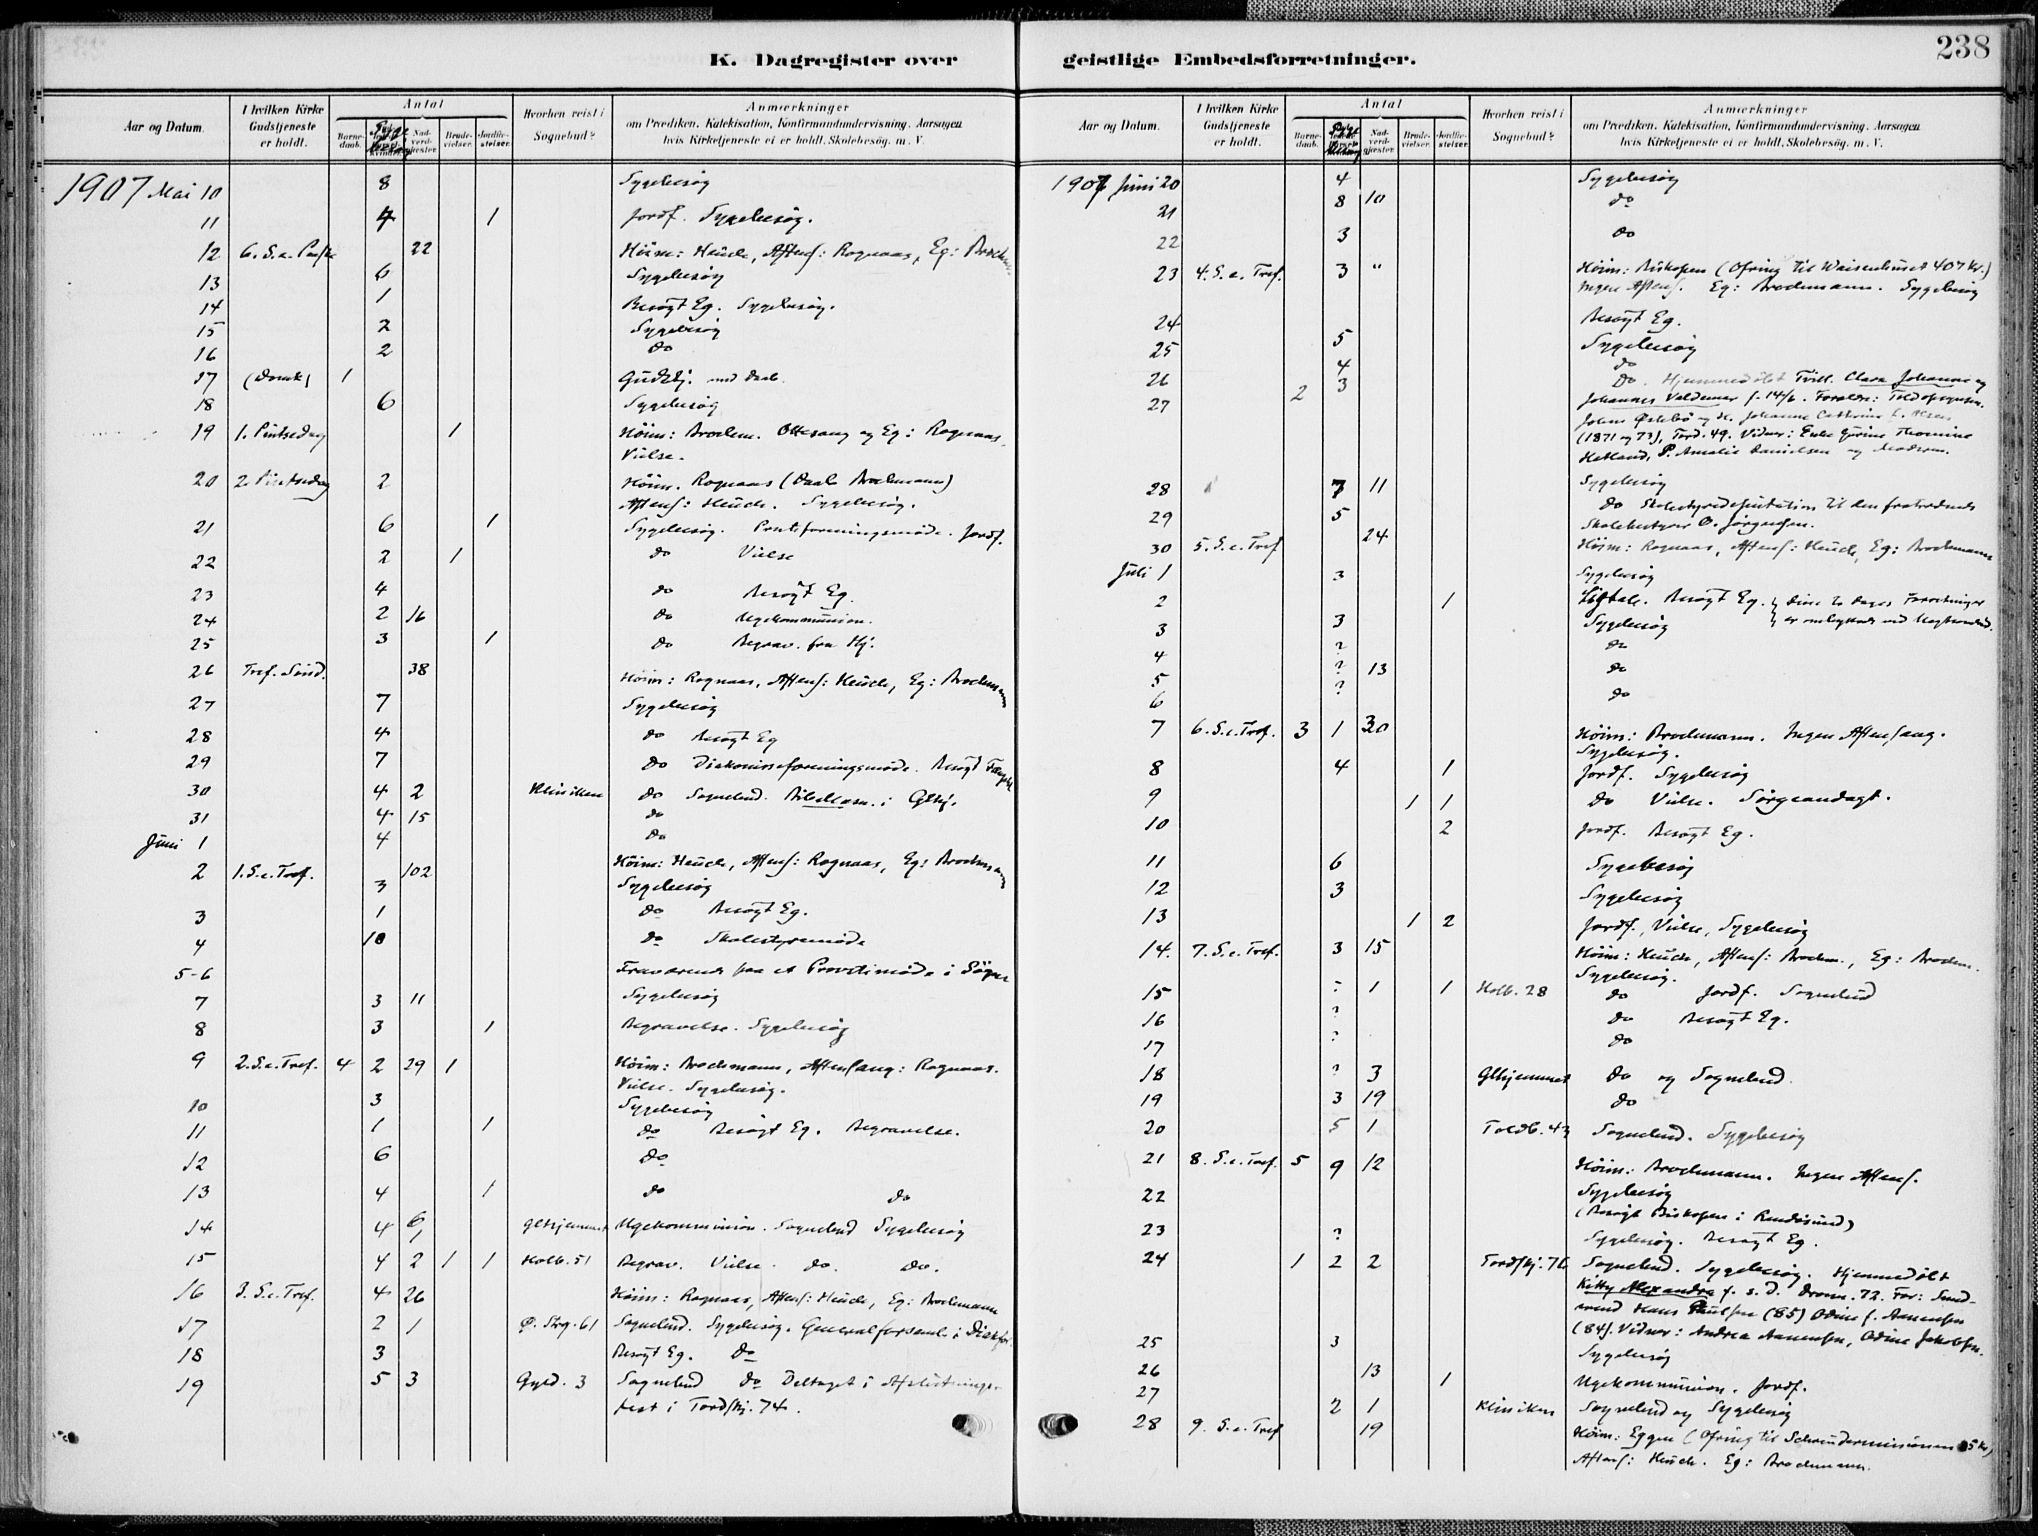 238
K. Dagregister over geistlige Embedsforretninger.
Aar og Datum. I hvilken Kirke Gudstjeneste er holdt. Antal Barne-daab. Nad-verd-gjæster. Brude-vielser. Jordfæ-stelser. Hvorhen reist i Sognebud? Anmærkninger om Prædiken. Katekisation, Konfirmandundervisning. Aarsagen hvis Kirketjeneste ei er holdt. Skolebesøg. m. V.
1907 Mai 10 8 Sygebesøg
11 4 1 Jordf. Sygebesøg.
12 6. S. e. Paaske 22 Høim: Heuch, Aftens: Rognaas, Eg:
13 6 Sygebesøg
14 1 Besøgt Eg. Sygebesøg.
15 2 Sygebesøg
16 2 do
17 (Dansk) 1 Gudstj. med Daab.
18 6 Sygebesøg
19 1. Pintsedag 1 Høim: Brochm. Ottesang og Eg: Rognaas.
Vielse.
20 2. Pintsedag 2 Høim. Rognaas (Daab Brochmann)
Aftens: Heuch. Sygebesøg.
21 6 1 Sygebesøg. Jordf.
22 2 1 do Vielse
23 4 do Besøgt Eg.
24 2 16 do Ugekommunion.
25 3 1 do Begrav. fra Kj.
26 Tref. Sønd. 38 Høim: Rognaas, Aftens: Heuch, Eg: Brochmann
27 7 Sygebesøg
28 4 do Besøgt Eg
29 7 do Diakonisseforeningsmøde. Besøgt
30 4 2 Kliniken do Sognebud. i
31 4 15 do
Juni 1 4 do
2 1. S. e. Tref. 102 Høim: Heuch, Aftens: Rognaas, Eg: Brochmann
3 Sygebesøg
3 1 do Besøgt Eg.
4 10 do Skolestyremøde
5-6 Fraværende paa et Provstimøde i Søgne
7 3 11 Sygebesøg
8 3 1 Begravelse. Sygebesøg
9 2. S. e. Tref. 4 2 29 1 Høim: Brochmann, Aftensang: Rognaas.
Vielse. Sygebesøg.
10 3 Sygebesøg
11 1 1 do Besøgt Eg. Begravelse.
12 6 do
13 4 1 do do
14 4 6 1 Glhjemmet Ugekommunion. Sognebud Sygebesøg
15 4 2 1 1 Holb. 51 Begrav. Vielse. do. do.
16 3. S. e. Tref. 4 26 Høim: Rognaas, Aftens: Heuch, Eg: Brochmann
17 2 1 Ø. Strg. 61 Sognebud. Sygebesøg. Generalforsaml. i
18 3 Besøgt Eg. do
19 5 3 Gyld. 3 Sognebud do Deltaget i Afslutnings-
fest i Tordskj. 74.
Aar og Datum. I hvilken Kirke Gudstjeneste er holdt. Antal Barne-daab. Nad-verd-gjæster. Brude-vielser. Jordfæ-stelser. Hvorhen reist i Sognebud? Anmærkninger om Prædiken. Katekisation, Konfirmandundervisning. Aarsagen hvis Kirketjeneste ei er holdt. Skolebesøg. m. V.
1907 Juni 20 4 Sygebesøg
21 8 10 do
22 3 do
23 4. S. e. Tref. 3 " Høim: Biskopen (Ofring til Waisenhuset 407 Kr.)
Ingen Aftens. Eg: Brochmann. Sygebesøg
24 Besøgt Eg.
25 5 Sygebesøg
26 4 do
27 2 3 do. Hjemmedøbt Tvill. Clara Johanne og
Johannes Valdemar f. 14/6. Foreldre:
(1871 og 73), Tord. 49. Vidner: Enke Thomine
Hetland, P. Amalie Danielsen og
28 7 11 Sygebesøg
29 5 do Skolestyredeputation til den fratrædende
Skolebestyrer O. Jørgensen.
30 5. S. e. Tref 24 Høim: Rognaas, Aftens: Heuch, Eg: Brochmann
Juli 1 3 Sygebesøg
2 1 Ligtale. Besøgt Eg. } Disse 2 Dages Forretninger
3 3 Sygebesøg } er ombyttede ved
4 ? do
5 ? 13 do
6 ? do
7 6. S. e. Tref. 3 1 30 Høim: Brochmann. Ingen Aftensang.
Sygebesøg.
8 4 1 Jordf. Sygebesøg
9 1 1 do Vielse. Sørgeandagt.
10 2 Jordf. Besøgt Eg.
11 6 Sygebesøg
12 3 Sygebesøg
13 1 2 Jordf., Vielse, Sygebesøg
14. 7. S. e. Tref. 3 15 Høim: Heuch, Aftens: Brochm., Eg: Brochm.
Sygebesøg.
15 ? 1 1 Holb. 28 do Jordf. Sognebud
16 ? do Besøgt Eg.
17 ? do
18 ? 3 Glhjemmet do og Sognebud
19 3 19 do
20 5 1 Toldb. 43 Sognebud. Sygebesøg
21 8. S. e. Tref. 5 9 12 Høim: Brochmann. Ingen Aftens.
22 Sygebesøg
(Besøgt Biskopen i Randøsund)
23 ? Sygebesøg. Besøgt Eg.
24 1 2 2 Tordskj. 76 Sognebud. Sygebesøg. Hjemmedøbt
Kitty Alexandra f. s. D. Dronn. 72. For:
Hans Paulsen (85) Odine f. Aanensen
(84). Vidner: Andrea Aanensen, Odine Jakobsen.
25 3 Sygebesøg
26 13 1 Ugekommunion. Jordf.
27 2 1 Kliniken Sognebud og Sygebesøg
28 9. S. e. Tref 19 Høim: Eggen (Ofring til
Aftens: Heuch. Eg: Brochmann.